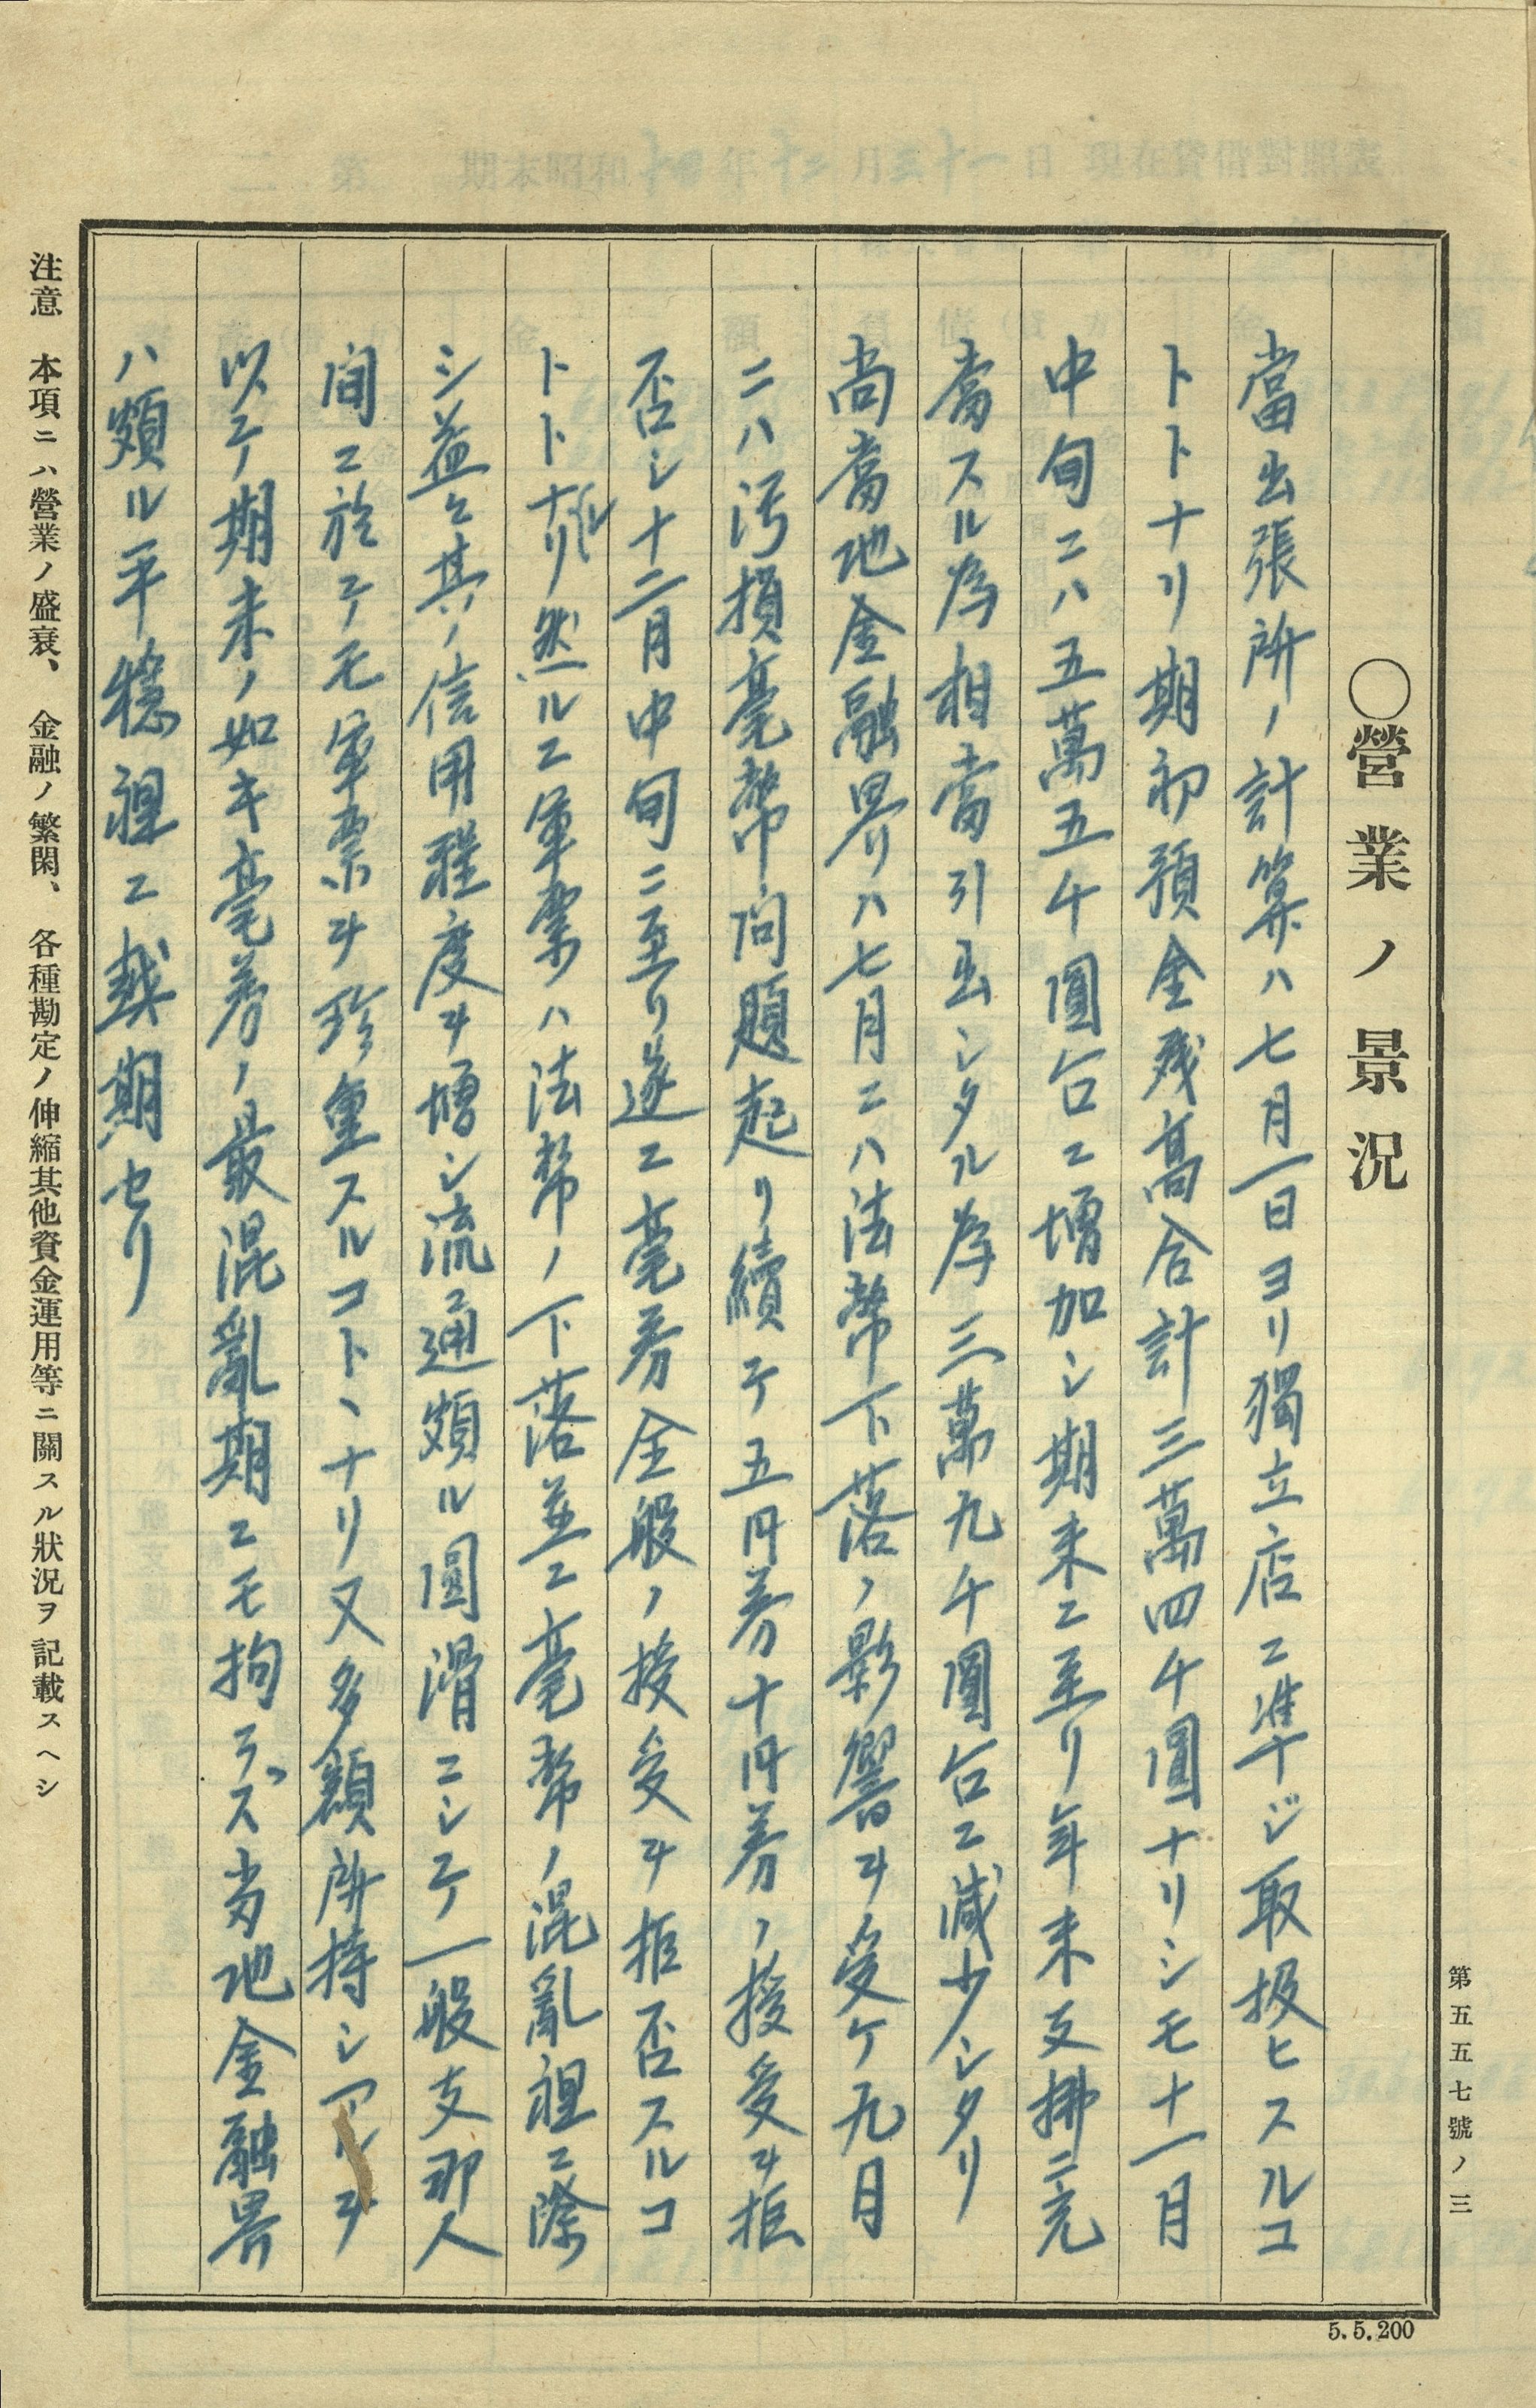 第五五七號ノ三
○營業ノ景況
當出張所ノ計算ハ七月一日ヨリ獨立店ニ準ジ取扱ヒスルコ
トトナリ期初預金残高合計三萬四千圓ナリシモ十一月
中旬ニハ五萬五千圓台ニ増加シ期末ニ至リ年末支拂ニ充
當スル為相當引出シタル為三萬九千圓台ニ減少シタリ
尚當地金融界ハ七月ニハ法幣下落ノ影響ヲ受ケ九月
ニハ汚損毫幣問題起リ續テ五円券十円券ノ授受ヲ拒
否シ十二月中旬ニ至リ遂ニ毫券全般ノ授受ヲ拒否スルコ
トトナリ然ルニ軍票ハ法幣ノ下落並ニ毫幣ノ混亂裡ニ際
シ益々其ノ信用程度ヲ増シ流通頗ル圓滑ニシテ一般支那人
間ニ於テモ軍票ヲ珍重スルコトヽナリ又多額所持シアルヲ
以テ期末ノ如キ毫券ノ最混亂期ニモ拘ラズ当地金融界
ハ頗ル平穏裡ニ越期セリ
注意 本項ニハ營業ノ盛衰、金融ノ繁閑、各種勘定ノ伸縮其他資金運用等ニ關スル狀況ヲ記載スヘシ
5.5.200